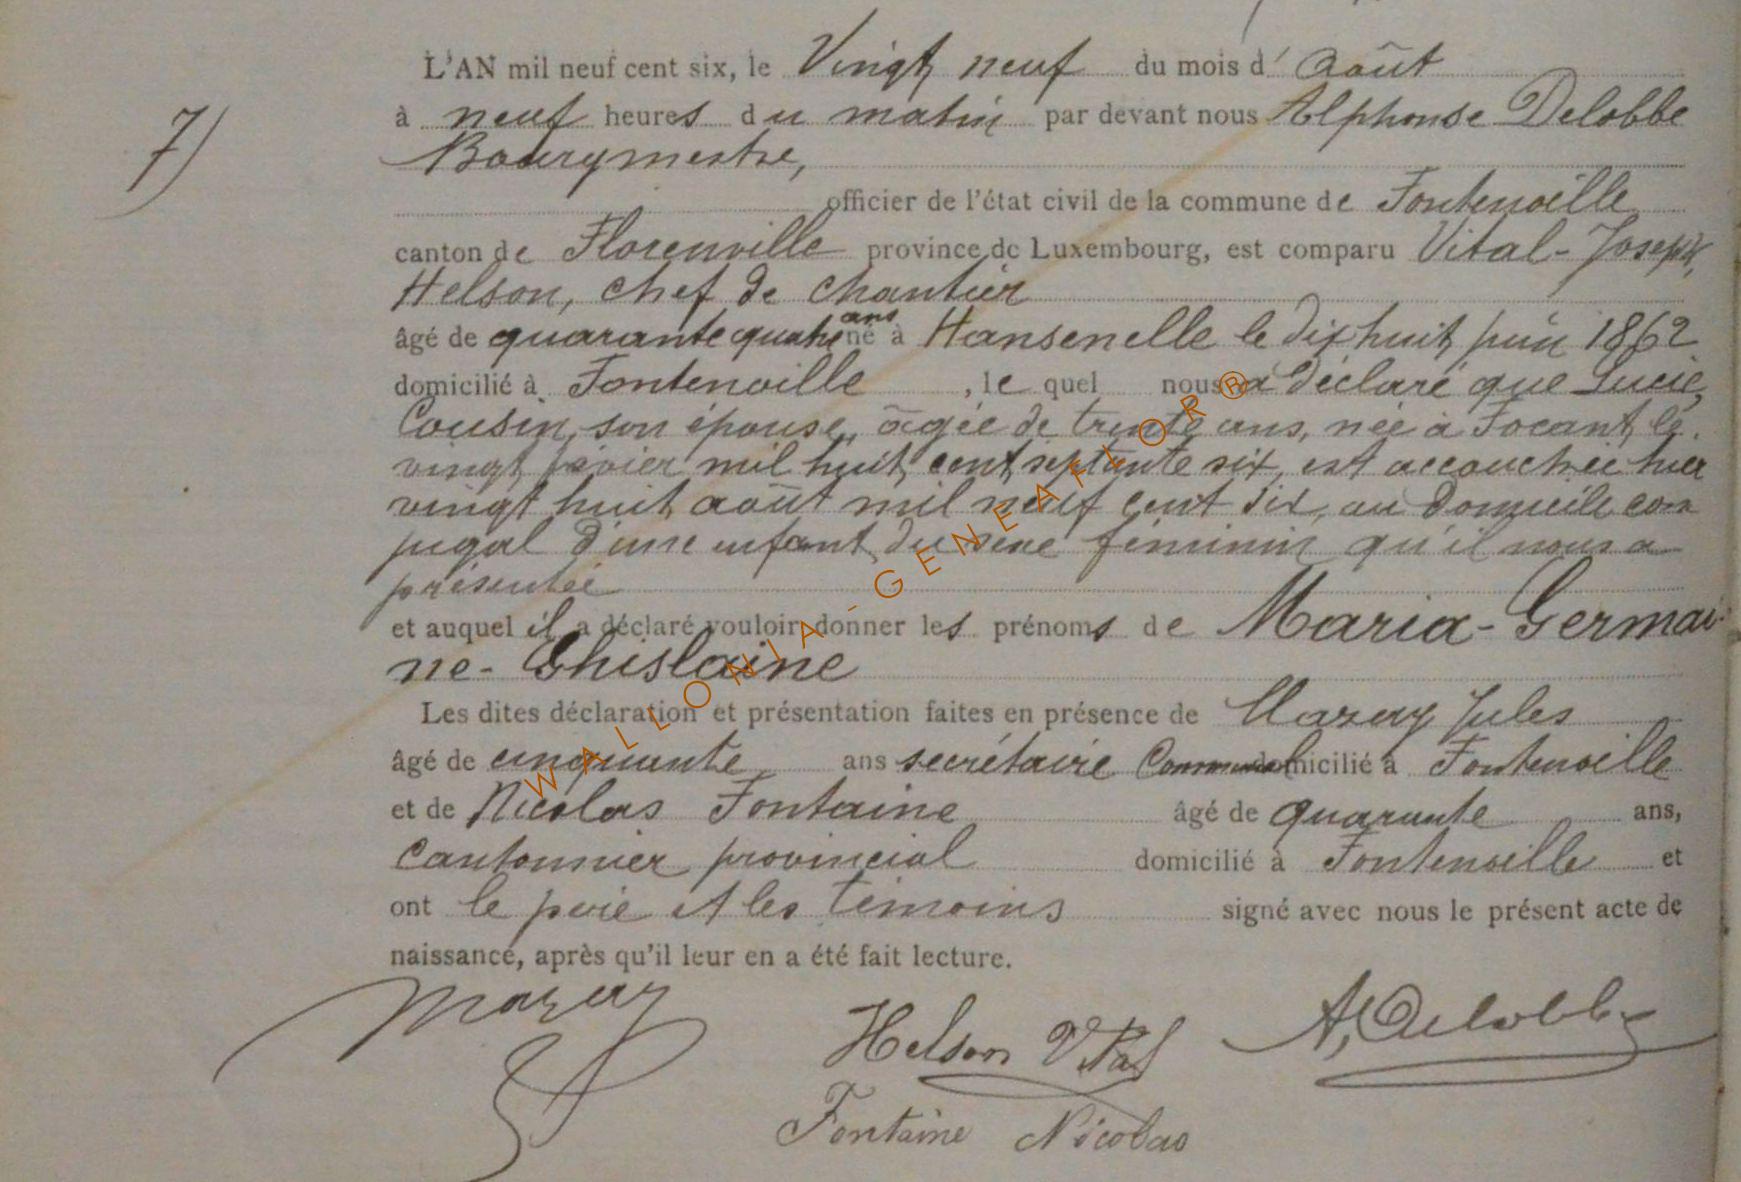 L'AN mil neuf cent six, le Vingt neuf du mois d' Août
7)
à neuf heures du matin par devant nous Alphonse Delobbe
Bourgmestre,
officier de l'état civil de la commune de Fontenoille
canton de Florenville province de Luxembourg, est comparu Vital-Joseph
Helson, chef de chantier
âgé de quarante quatre ans né à Hansenelle le dix huit juin 1862
domicilié à Fontenoille, le quel nous a déclaré que Lucie
Cousin, son épouse, âgée de trente ans, née à Focant, le
vingt janvier mil huit cent septante six, est accouchée hier
vingt huit août mil neuf cent six, au domicile con
jugal d'une enfant du sexe féminin qu'il nous a
présentée
et auquel il a déclaré vouloir donner les prénoms de Maria-Germai-
ne-Ghislaine
Les dites déclaration et présentation faites en présence de Mazay Jules
âgé de cinquante ans secrétaire Communal domicilié à Fontenoille
et de Nicolas Fontaine âgé de quarante ans,
Cantonnier provincial domicilié à Fontenoille et
ont le père et les témoins signé avec nous le présent acte de
naissance, après qu'il leur en a été fait lecture.
Mazay
Helson Vital
A, Delobbe
Fontaine Nicolas
WALLONIA-GENEAFLOR®